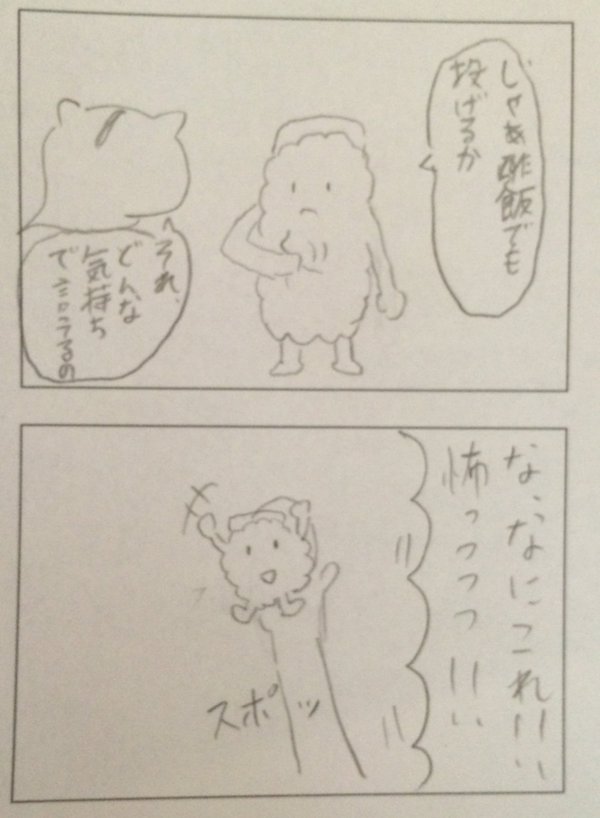 じゃあ酢飯でも
投げるか
それ、
どんな
気持ち
で言ってるの
な、なにこれ!!
怖っっっっ!!
スポッ